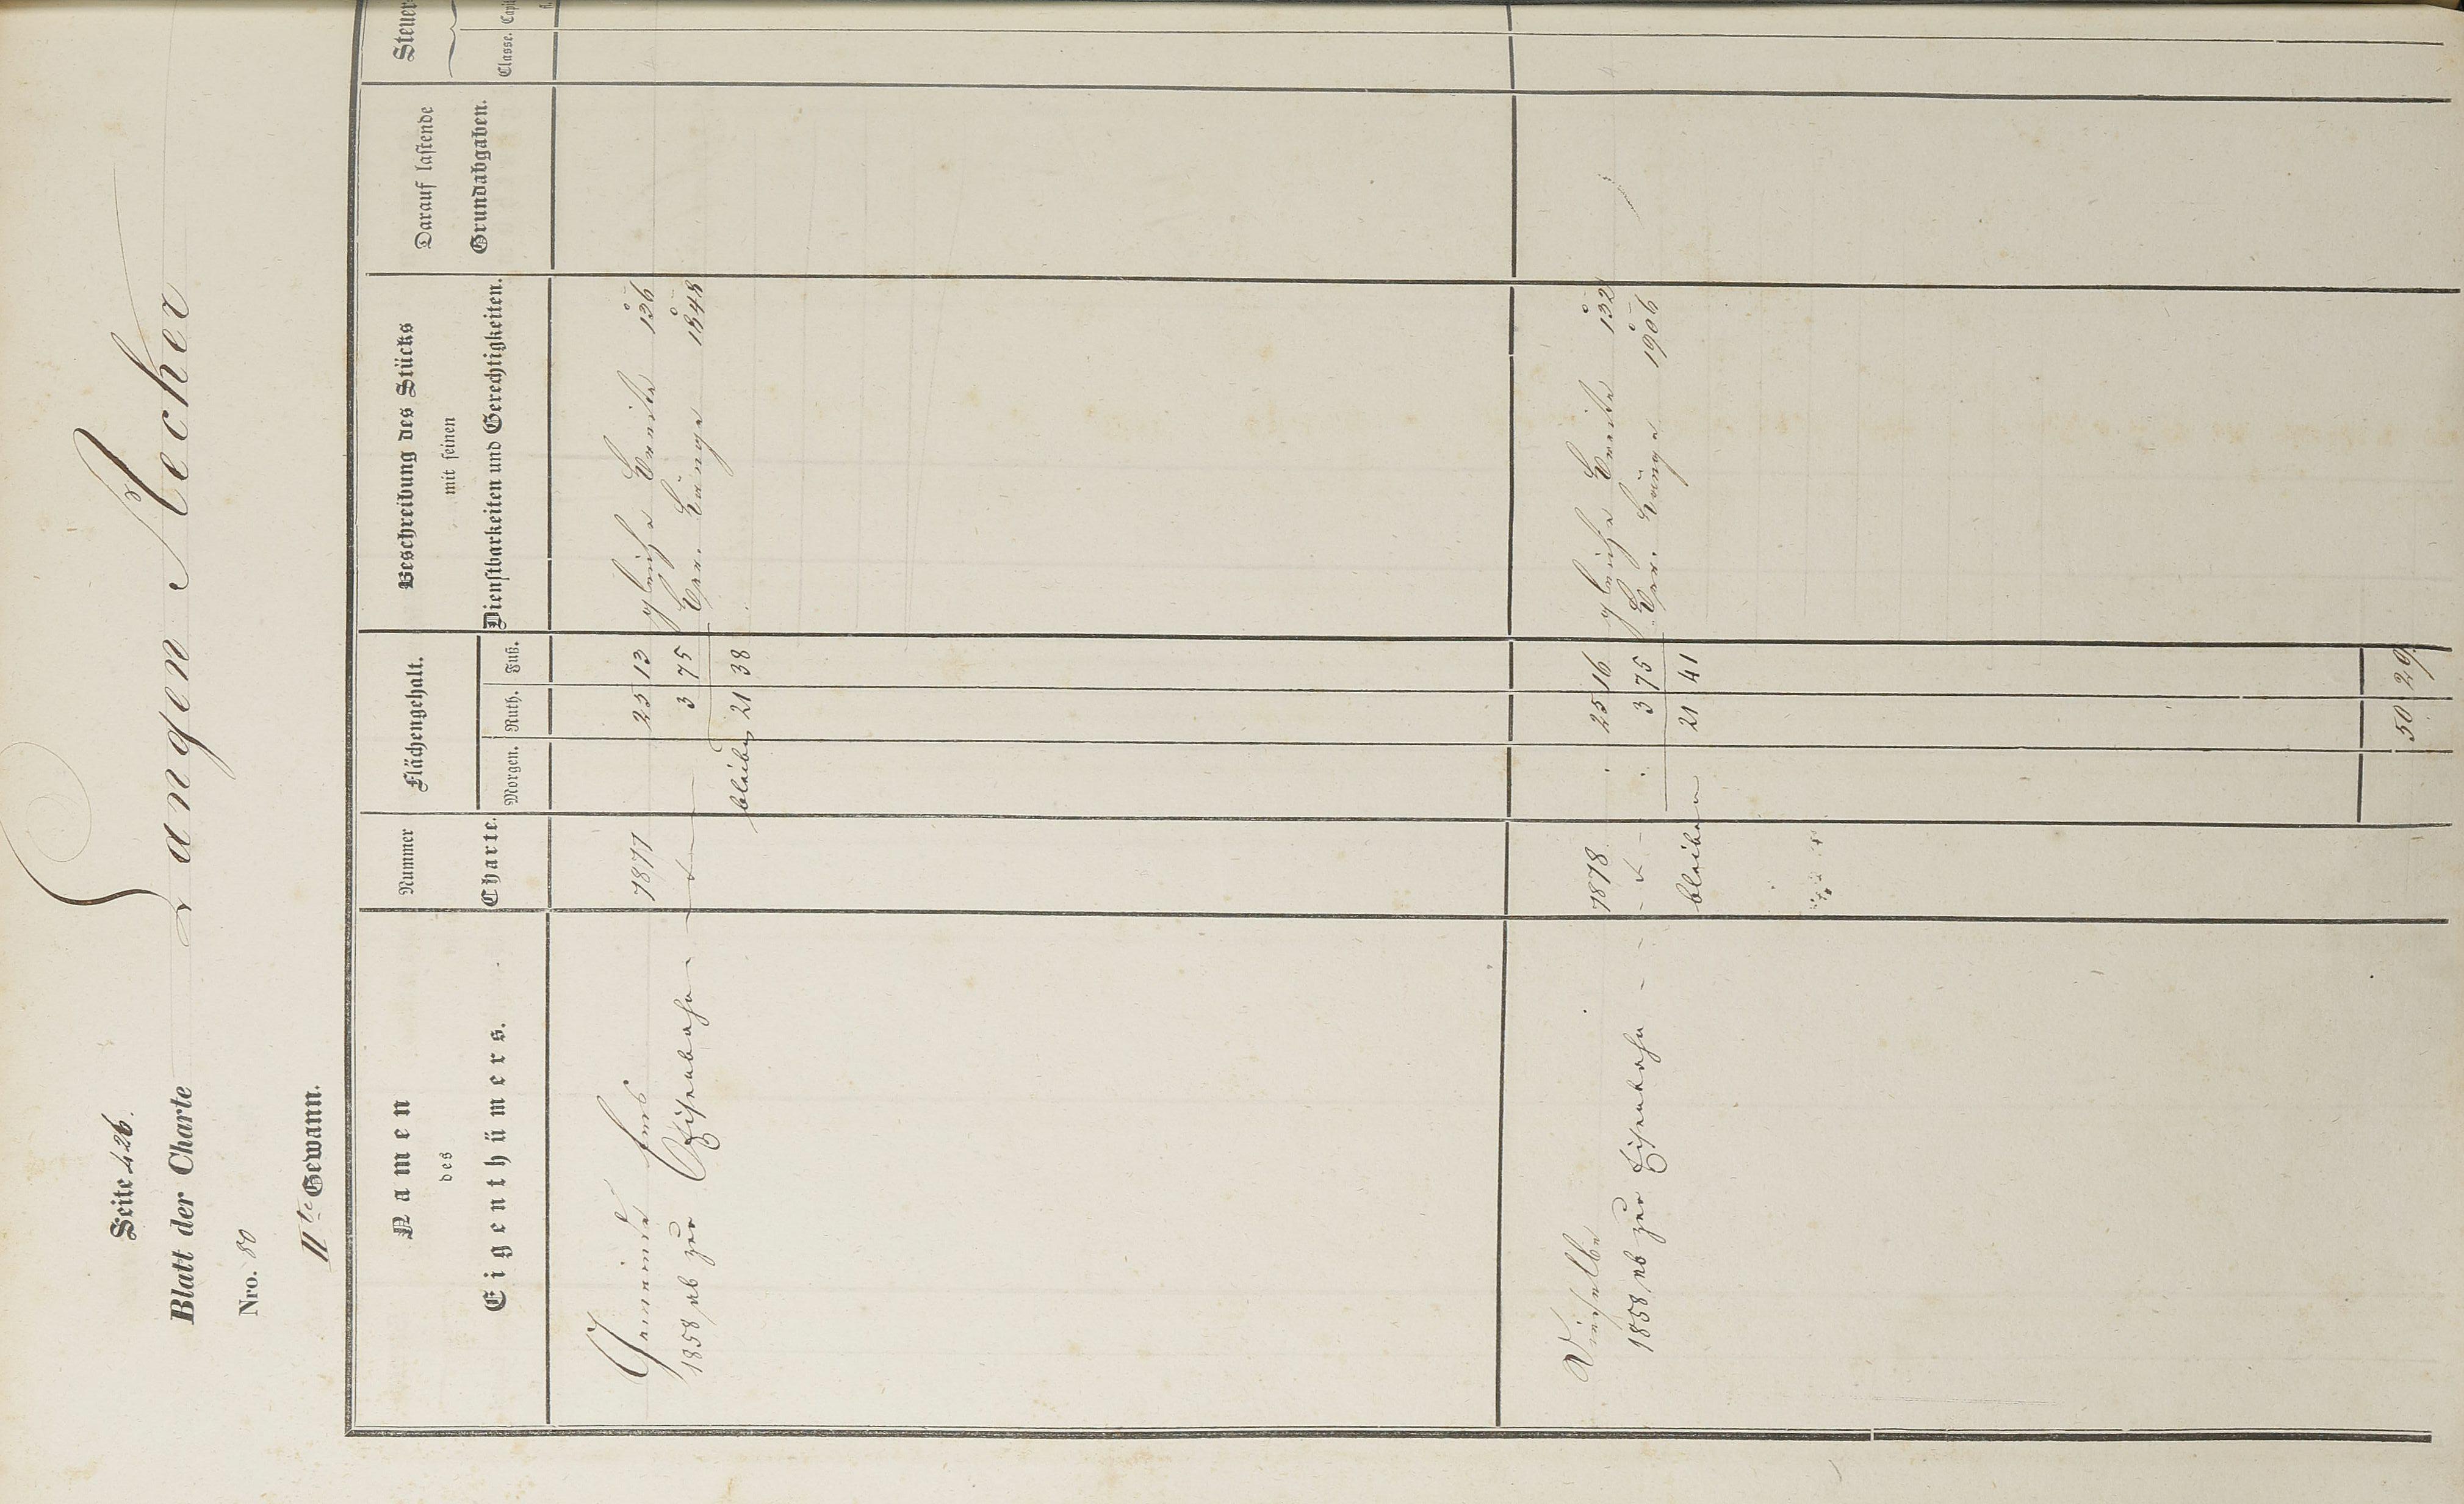 Seite 426.
Langen Aecker
Blatt der Charte
Nro. 80
11te Gewann.
Namen
des
Eigenthümers.
Nummer
Charte.
Flächengehalt.
Morgen. Ruth. Fuß.
Beschreibung des Stücks
mit seinen
Dienstbarkeiten und Gerechtigkeiten.
Darauf lastende
Grundabgaben.
Steuer
Classe.
Gemeinde Ems 7877 25 13 gleiche Breite 136
1858 ab zur Eisenbahn 3 75 Ver. Länge 1848
bleiben 21 38
Dieselbe 7878 25 16 gleiche Breite 132
1858 ab zur Eisenbahn 3 75 Ver. Länge 1906
bleiben 21 41
50 29